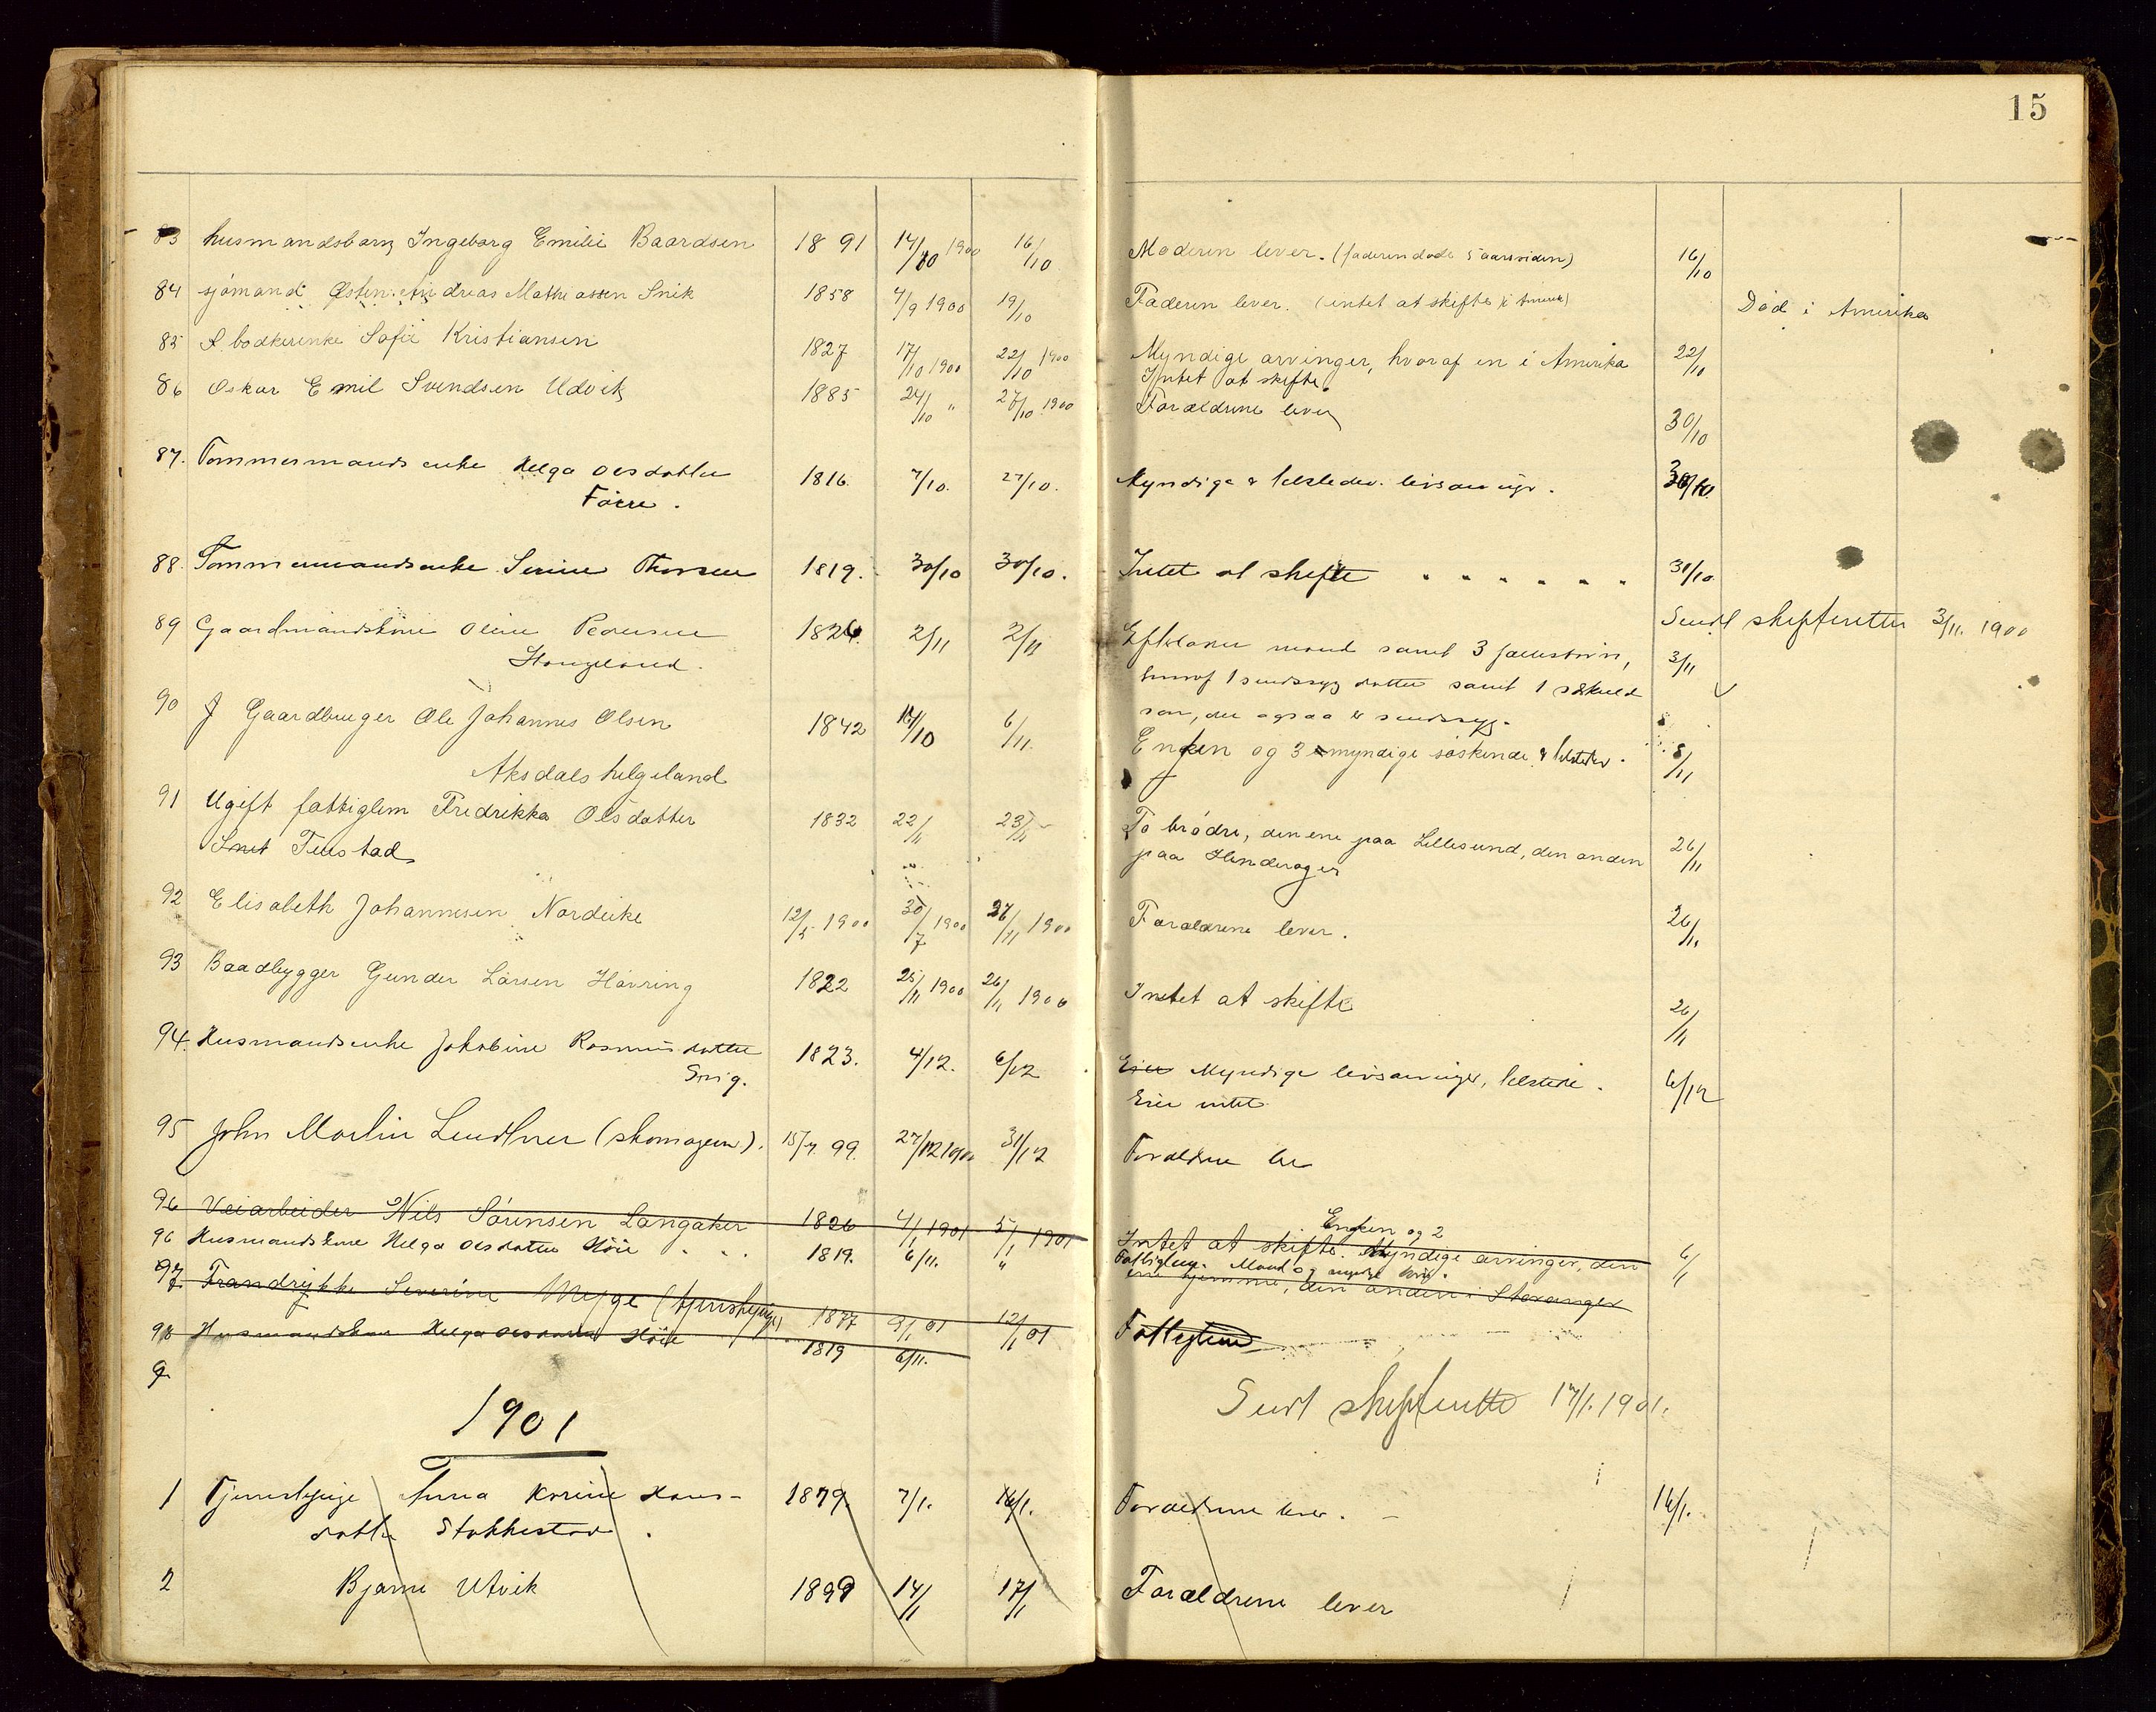 15
83 husmandsbarn Ingeborg Emilie Baardsen 1891 14/10 1900 16/10 Moderen lever. (faderen døde 5 aar siden) 16/10
84 sjømand Østen Andreas Mathiassen Snik 1858 4/9 1900 19/10 Faderen lever. (intet at skifte i Amerik) Død i Amerika
85 F. bødkerenke Sofie Kristiansen 1827 17/10 1900 22/10 1900 Myndige arvinger, hvoraf en i Amerika 22/10
Intet at skifte.
86 Oskar Emil Svendsen Udvik 1885 24/10 " 27/10 1900 Forældrene lever 30/10
87. Tømmermandsenke Helga Olsdatter 1816. 7/10. 27/10. Myndige & tilsteder. livsarvinger. 30/10.
Føere.
88. Tømmermandsenke Serine Thorsen 1819. 30/10 30/10. Intet at skifte 31/10
89 Gaardmandskone Oline Pedersen 1826. 2/11 2/11 Efterlader mand samt 3 fællesbørn, 3/11 Sendt skifteretten 3/11. 1900
Haugeland.
hvoraf 1 sindssyg datter samt 1 særkuld
søn, der ogsaa er sindssyg.
90 Gaardbruger Ole Johannes Olsen 1842 14/10 6/11. Enken og 3 myndige søskende, tilsteder. 8/11
Aksdals helgeland
91 Ugift fattiglem Fredrikka Olsdatter 1832 22/11 23/11 To brødre, den ene paa Lillesund, den anden 26/11
Snet Tuastad
paa Hinderager
92 Elisabeth Johannesen Nordeike 12/5 1900 30/7 1900 27/11 1900 Forældrene lever. 26/11
93 Baadbygger Gunder Larsen Høvring 1822 25/11 1900 26/11 1900 Intet at skifte 26/11
94. Husmandsenke Jakobine Rasmusdatter 1823. 4/12. 6/12 Eier Myndige livsarvinger, tilstede. 6/12
Snig.
Eier intet
95 John Martin Lindtner (skomagern). 15/7. 99. 27/12 1900 31/12 Forældrene lev
96 Veiarbeider Nils Sørensen Langaker 1826 4/1 1901 5/1 1901 Intet at skifte. Enken og 2 Myndige arvinger, den 6/1
ene hjemme, den anden i Stavanger
96 Husmandskone Helga Olsdatter Høie 1819. 6/11. " Fattiglem. Mand og myndige børn.
97 Frandrykke Severine Mejge (tjenstepige) 1877 9/1 01 12/1 01
98 Husmandskone Helga Olsdatter Høie 1819 6/11. Fattiglem
9
Sendt skifteretten 17/1. 1901.
1901
1 Tjenstepige Anna Karine Hans- 1879. 7/1. 16/1. Forældrene lever. 16/1.
datter Stakkestad.
2 Bjarne Utvik 1899 14/1 17/1 Forældrene lever